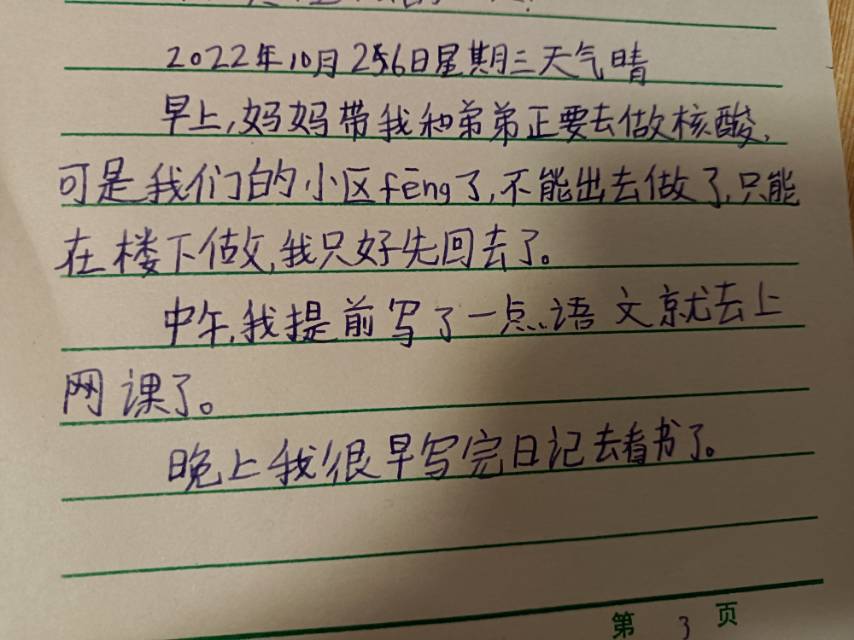 2022年10月26日星期三天气晴
早上,妈妈带我和弟弟正要去做核酸,
可是我们的小区fēng了,不能出去做了,只能
在楼下做,我只好先回去了。
中午,我提前写了一点语文就去上
网课了。
晚上我很早写完日记去看书了。
第 3 页